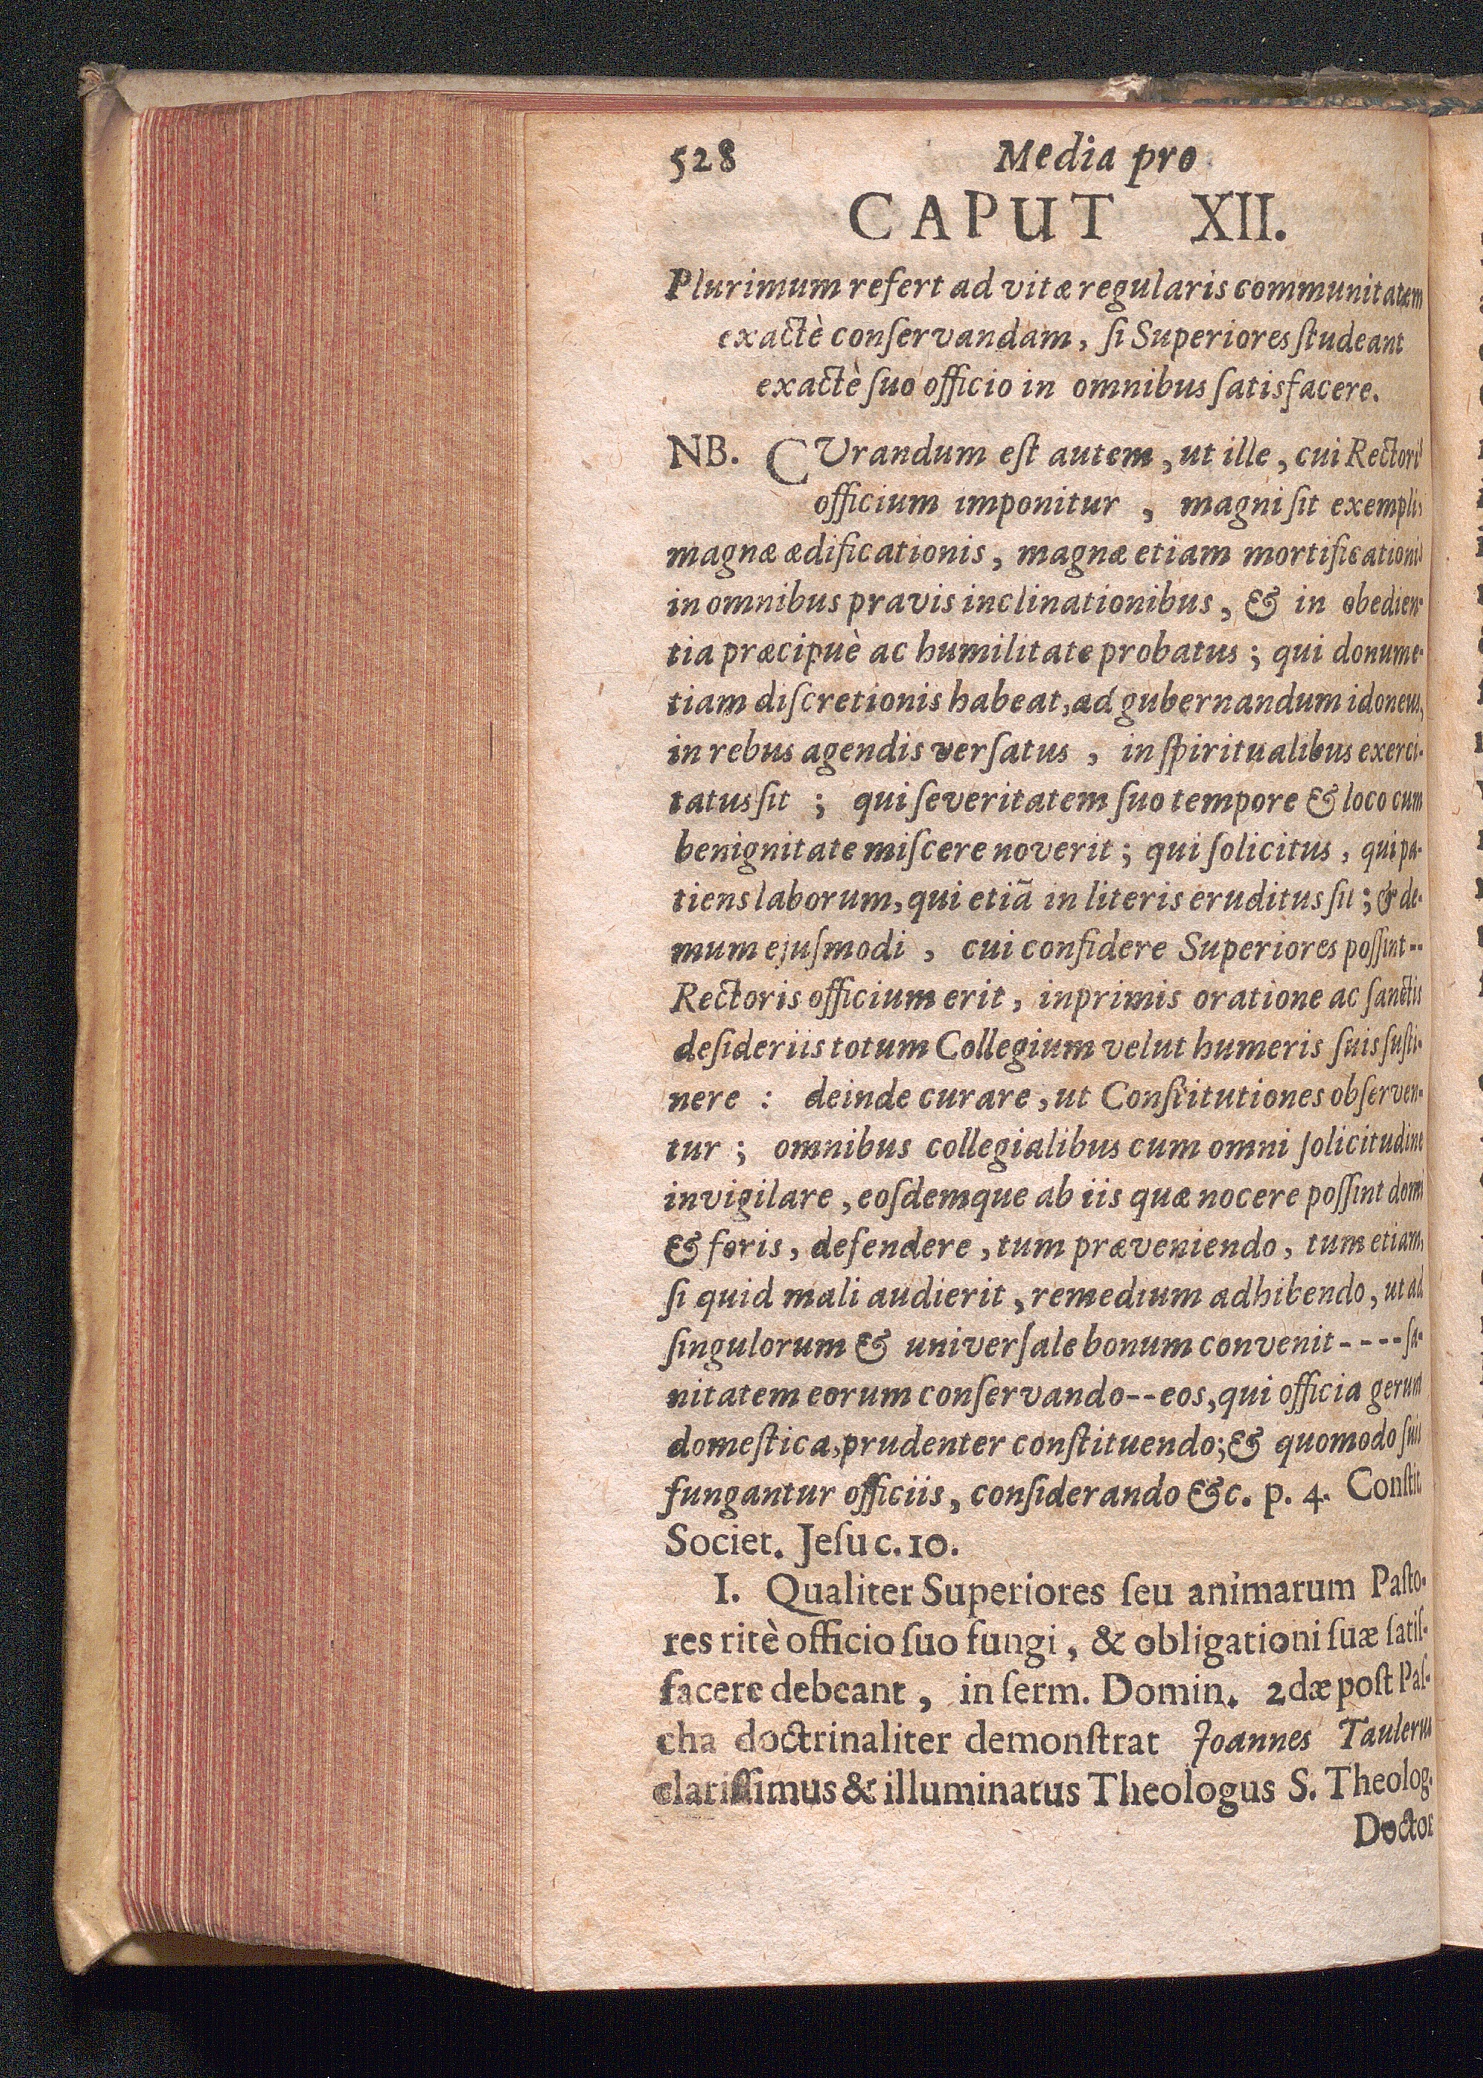 528 Media pro
CAPUT XII.
Plurimum refert ad vitæ regularis communitatem
exactè conſervandam, ſi Superiores ſtudeant
exactè ſuo officio in omnibus ſatisfacere.
NB. CUrandum eſt autem, ut ille, cui Rectoris
officium imponitur, magni ſit exempli,
magnæ ædificationis, magnæ etiam mortificationis
in omnibus pravis inclinationibus, & in obedien-
tia præcipuè ac humilitate probatus; qui donum e-
tiam diſcretionis habeat, ad gubernandum idoneus,
in rebus agendis verſatus, in ſpiritualibus exerci-
tatus ſit; qui ſeveritatem ſuo tempore & loco cum
benignitate miſcere noverit; qui ſolicitus, qui pa-
tiens laborum, qui etiã in literis eruditus ſit; & de-
mum ejuſmodi, cui confidere Superiores poſſint--
Rectoris officium erit, inprimis oratione ac ſanctis
deſideriis totum Collegium velut humeris ſuis ſuſti-
nere: deinde curare, ut Conſtitutiones obſerven-
tur; omnibus collegialibus cum omni ſolicitudine
invigilare, eoſdemque ab iis quæ nocere poſſint domi
& foris, defendere, tum præveniendo, tum etiam,
ſi quid mali audierit, remedium adhibendo, ut ad
ſingulorum & univerſale bonum convenit----ſa-
nitatem eorum conſervando--eos, qui officia gerunt
domeſtica, prudenter conſtituendo; & quomodo ſuis
fungantur officiis, conſiderando &c. p. 4. Conſtit.
Societ. Jeſu c. 10.
I. Qualiter Superiores ſeu animarum Paſto-
res ritè officio ſuo fungi, & obligationi ſuæ ſatiſ-
facere debeant, in ſerm. Domin. 2dæ poſt Paſ-
cha doctrinaliter demonſtrat Joannes Taulerus
clariſſimus & illuminatus Theologus S. Theolog.
Doctor